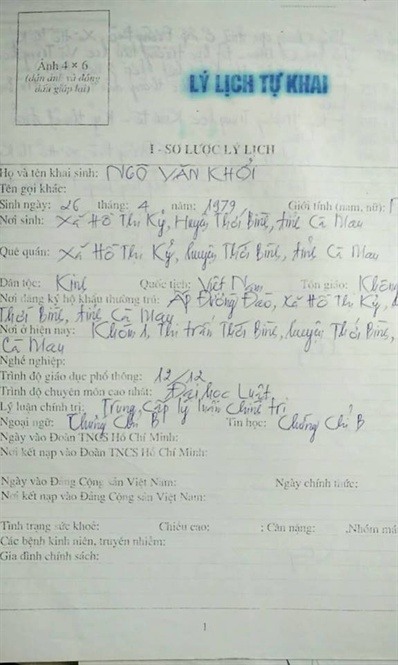 Ảnh 4 × 6
(dán ảnh và đóng
dấu giáp lai)
LÝ LỊCH TỰ KHAI
I - SƠ LƯỢC LÝ LỊCH
Họ và tên khai sinh: NGÔ VĂN KHỞI
Tên gọi khác:
Sinh ngày: 26 tháng: 4 năm: 1979 Giới tính (nam, nữ):
Nơi sinh: Xã Hồ Thị Kỷ, Huyện Thới Bình, tỉnh Cà Mau
Quê quán: Xã Hồ Thị Kỷ, huyện Thới Bình, tỉnh Cà Mau
Dân tộc: Kinh Quốc tịch: Việt Nam Tôn giáo: Không
Nơi đăng ký hộ khẩu thường trú: Ấp Đường Đào, Xã Hồ Thị Kỷ,
Thới Bình, tỉnh Cà Mau
Nơi ở hiện nay: Khóm 1, Thị trấn Thới Bình, huyện Thới Bình,
Cà Mau
Nghề nghiệp:
Trình độ giáo dục phổ thông: 12/12
Trình độ chuyên môn cao nhất: Đại học Luật
Lý luận chính trị: Trung cấp lý luận chính trị
Ngoại ngữ: Chứng chỉ B Tin học: Chứng chỉ B
Ngày vào Đoàn TNCS Hồ Chí Minh:
Nơi kết nạp vào Đoàn TNCS Hồ Chí Minh:
Ngày vào Đảng Cộng sản Việt Nam: Ngày chính thức:
Nơi kết nạp vào Đảng Cộng sản Việt Nam:
Tình trạng sức khoẻ: Chiều cao: ; Cân nặng: .Nhóm má
Các bệnh kinh niên, truyền nhiễm:
Gia đình chính sách:
1